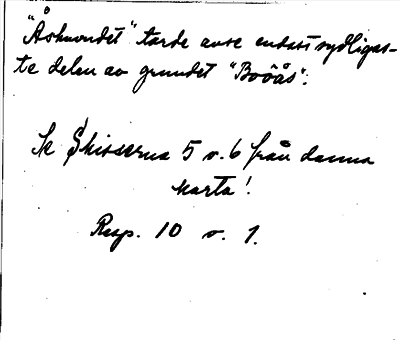 "Åskmundet" torde avse endast sydligas-
te delen av grundet "Boöås".
Se Skisserna 5 o. 6 från denna
karta!
Resp. 10 o. 1.